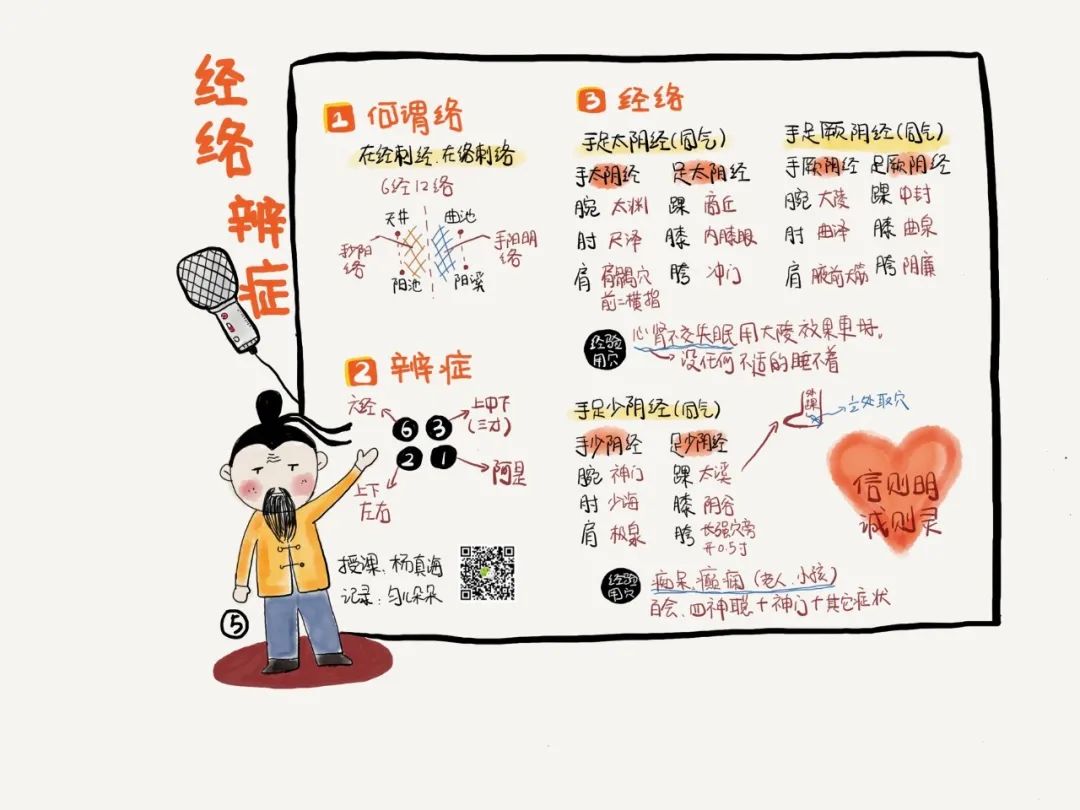 经络
辨症
1 何谓络
在经刺经、在络刺络
6经12络
天井
曲池
手少阳络
手阳明络
阳池
阳溪
2 辨症
六经
上中下
(三才)
6 3
2 1
上下
左右
阿是
授课：杨真海
记录：匀儿朵朵
5
3 经络
手足太阴经(同气)
手太阴经 足太阴经
腕 太渊 踝 商丘
肘 尺泽 膝 内膝眼
肩 肩髃穴
前二横指
胯 冲门
手足厥阴经(同气)
手厥阴经 足厥阴经
腕 大陵 踝 中封
肘 曲泽 膝 曲泉
肩 腋前大筋 胯 阴廉
经验
用穴
心肾不交失眠用大陵效果更好。
没任何不适的睡不着
手足少阴经(同气)
手少阴经 足少阴经
腕 神门 踝 太溪
肘 少海 膝 阴谷
肩 极泉 胯 长强穴旁
开0.5寸
½处取穴
信则明
诚则灵
经验
用穴
痴呆、癫痫(老人、小孩)
百会、四神聪+神门+其它症状